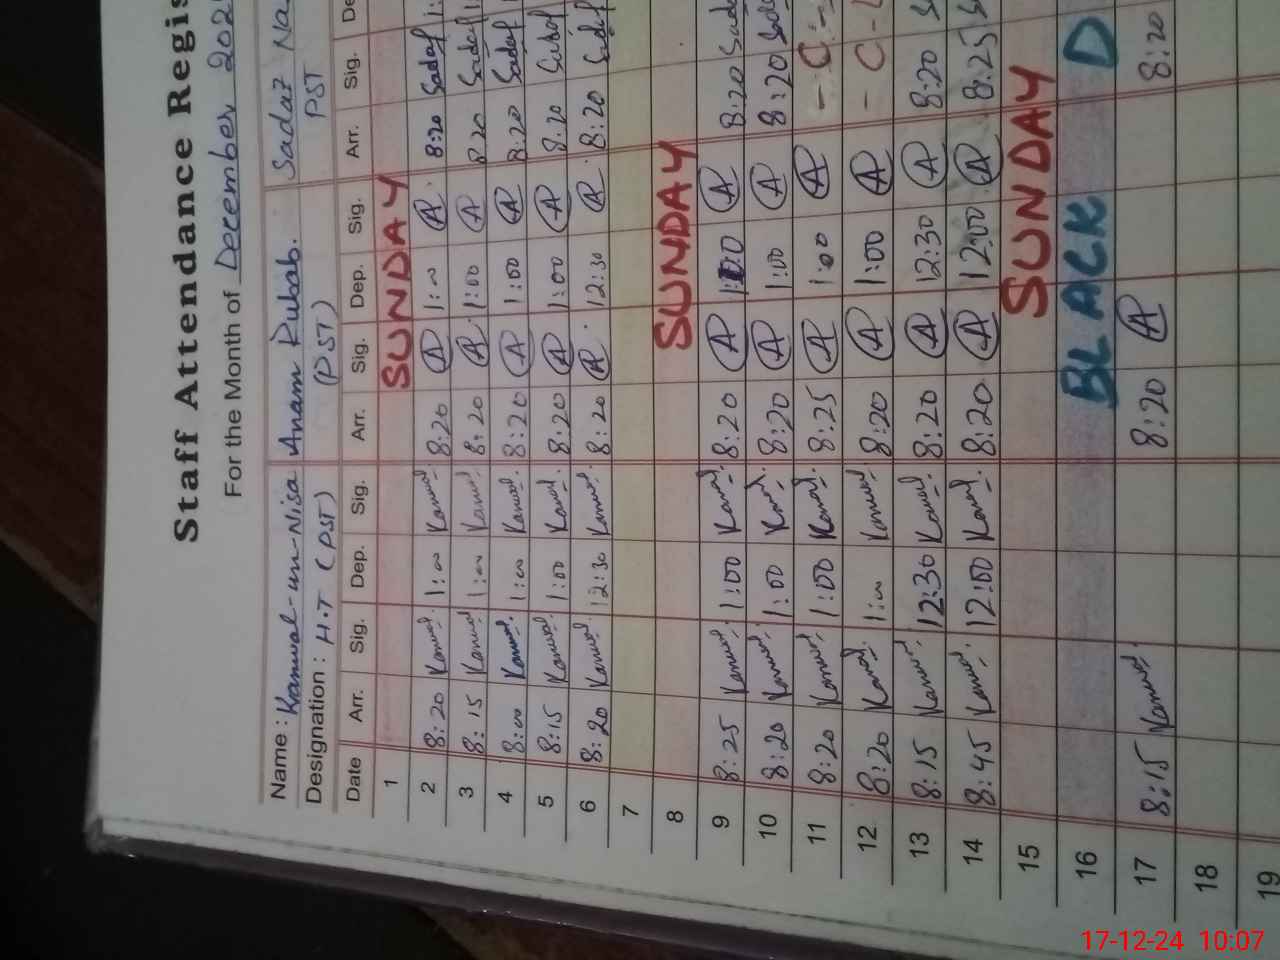 Staff Attendance Regis
For the Month of December 202
Name: Kanwal-un-Nisa Anam Rubab. Sadaf Na
Designation: H.T (PST) (PST) PST
Date Arr. Sig. Dep. Sig. Arr. Sig. Dep. Sig. Arr. Sig. De
1 SUNDAY
2 8:20 Kanwal. 1:00 Kanwal 8:20 A 1:00 A 8:20 Sadaf 1:
3 8:15 Kanwal 1:00 Kanwal. 8:20 A 1:00 A 8:20 Sadaf
4 8:00 Kanwal. 1:00 Kanwal. 8:20 A 1:00 A 8:20 Sadaf
5 8:15 Kanwal. 1:00 Kanwal. 8:20 A 1:00 A 8:20 Sadaf
6 8:20 Kanwal. 12:30 Kanwal. 8:20 A 12:30 A 8:20 Sadaf
7
8 SUNDAY
9 8:25 Kanwal. 1:00 Kanwal. 8:20 A 1:00 A 8:20 Sada
10 8:20 Kanwal. 1:00 Kanwal. 8:20 A 1:00 A 8:20 Sada
11 8:20 Kanwal. 1:00 Kanwal. 8:25 A 1:00 A - C -
12 8:20 Kanwal. 1:00 Kanwal 8:20 A 1:00 A - C - L
13 8:15 Kanwal. 12:30 Kanwal. 8:20 A 12:30 A 8:20 S
14 8:45 Kanwal. 12:00 Kanwal. 8:20 A 12:00 A 8:25 S
15 SUNDAY
16 BLACK D
17 8:15 Kanwal. 8:20 A 8:20
18
19
17-12-24 10:07